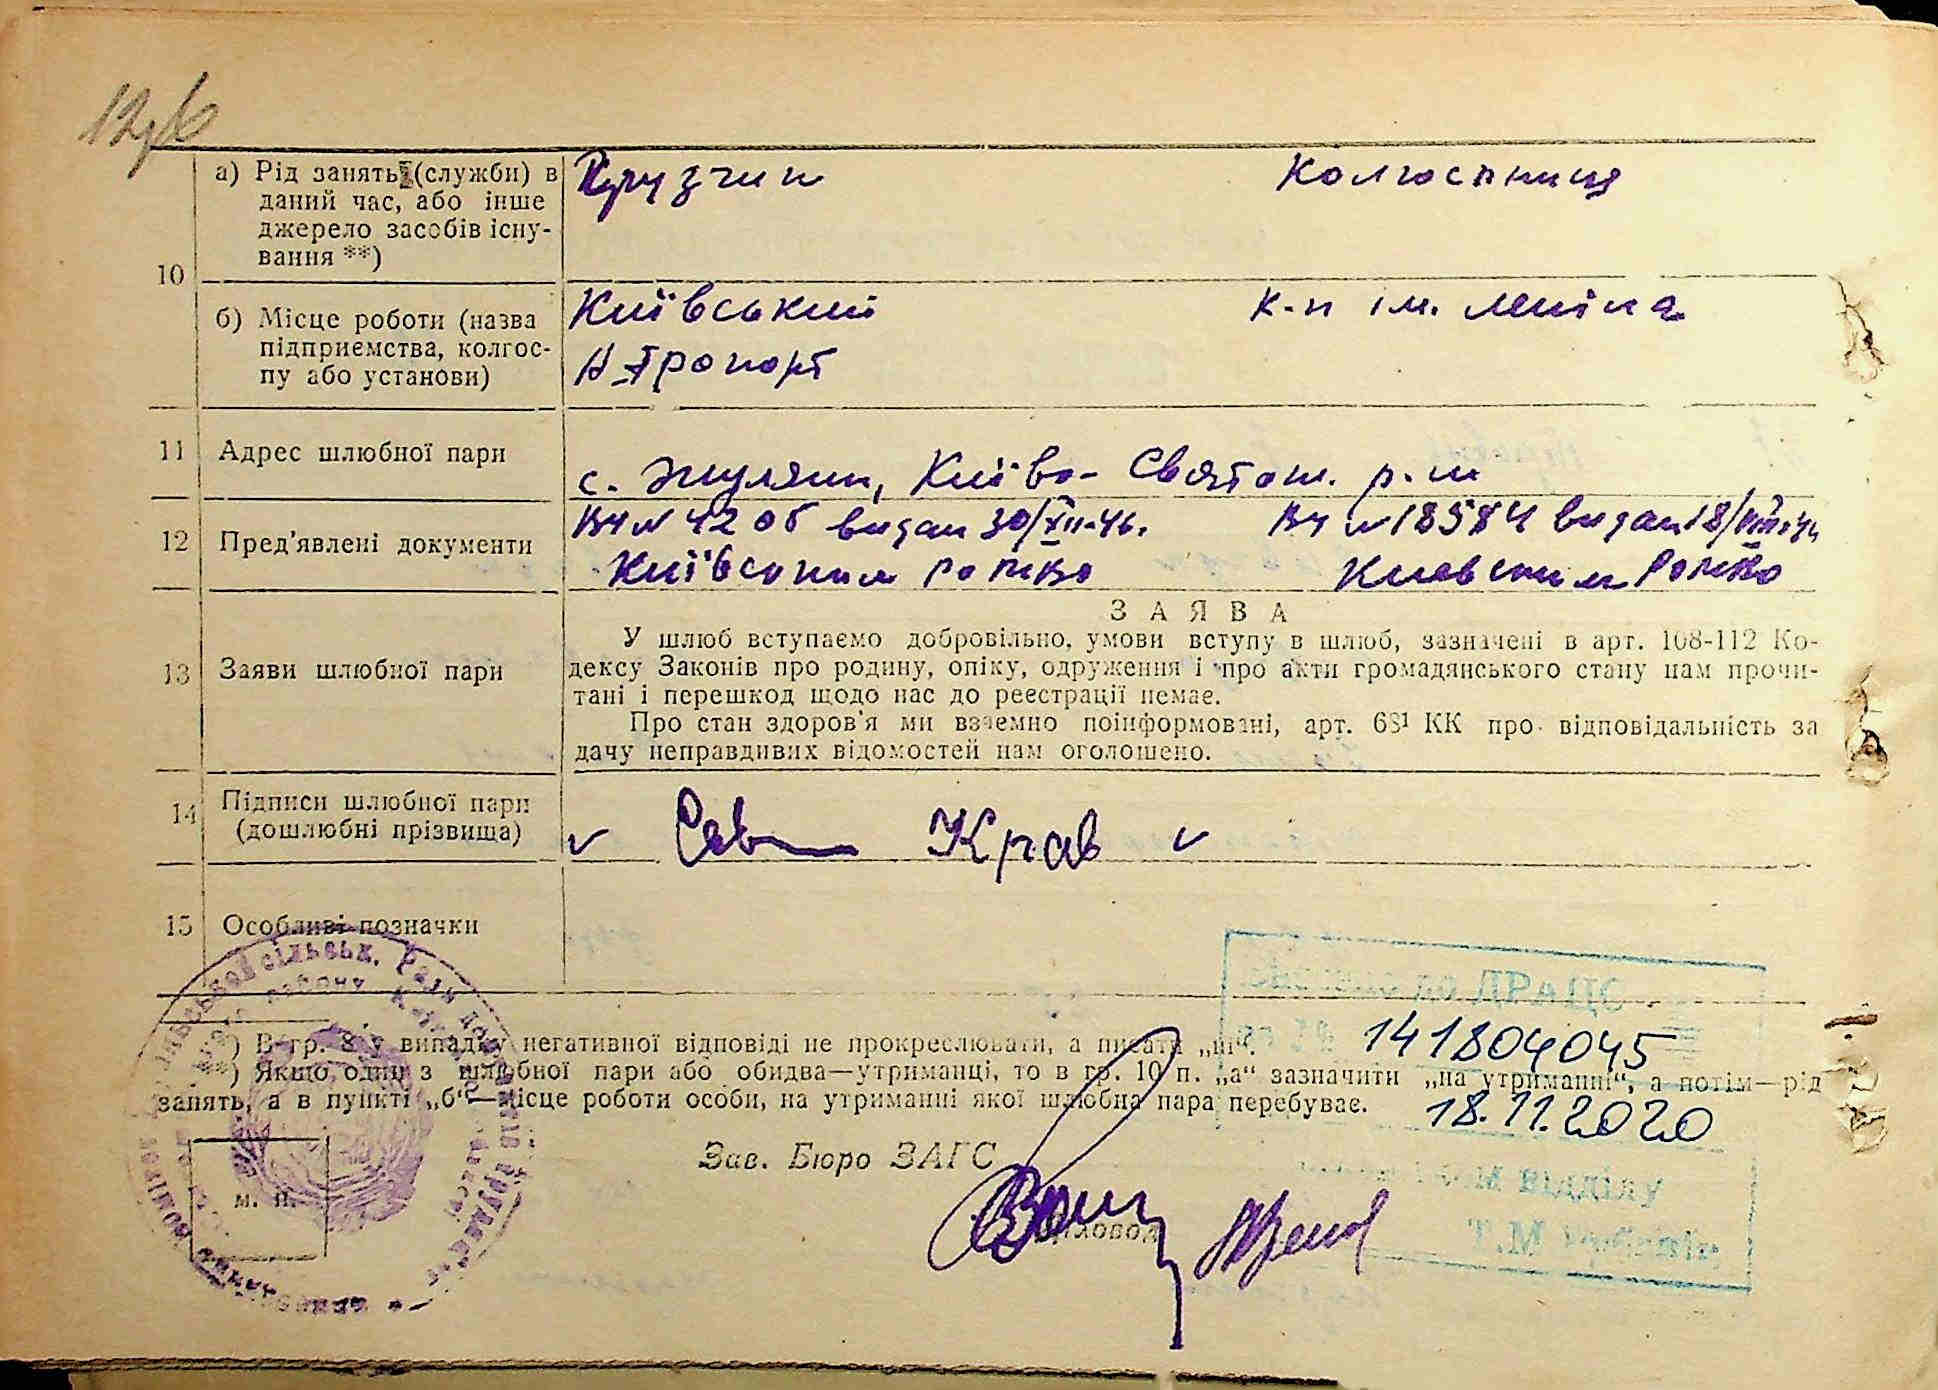 10
а) Рід занять (служби) в
даний час, або інше
джерело засобів існу-
вання **)
Колгоспниця
б) Місце роботи (назва
підприємства, колгос-
пу або установи)
Київський
к-п ім. Леніна
11 Адрес шлюбної пари
с. Жуляни, Київо-Святош. р-н
12 Пред'явлені документи
видан 30/XII-46.
видан 18/VIII
Київським
Киевским
13 Заяви шлюбної пари
ЗАЯВА
У шлюб вступаємо добровільно, умови вступу в шлюб, зазначені в арт. 108-112 Ко-
дексу Законів про родину, опіку, одруження і про акти громадянського стану нам прочи-
тані і перешкод щодо нас до реєстрації немає.
Про стан здоров'я ми взаємно поінформовані, арт. 68¹ КК про відповідальність за
дачу неправдивих відомостей нам оголошено.
14 Підписи шлюбної пари
(дошлюбні прізвища)
Сав
Крав
15 Особливі позначки
до ДРАЦС
*) В гр. 8 у випадку негативної відповіді не прокреслювати, а писати „ні“.
141804045
**) Якщо один з шлюбної пари або обидва—утриманці, то в гр. 10 п. „а“ зазначити „на утриманні“, а потім—рід
занять, а в пункті „б“—місце роботи особи, на утриманні якої шлюбна пара перебуває.
18.11.2020
Зав. Бюро ЗАГС
відділу
Т.М
Діловод
м. п.